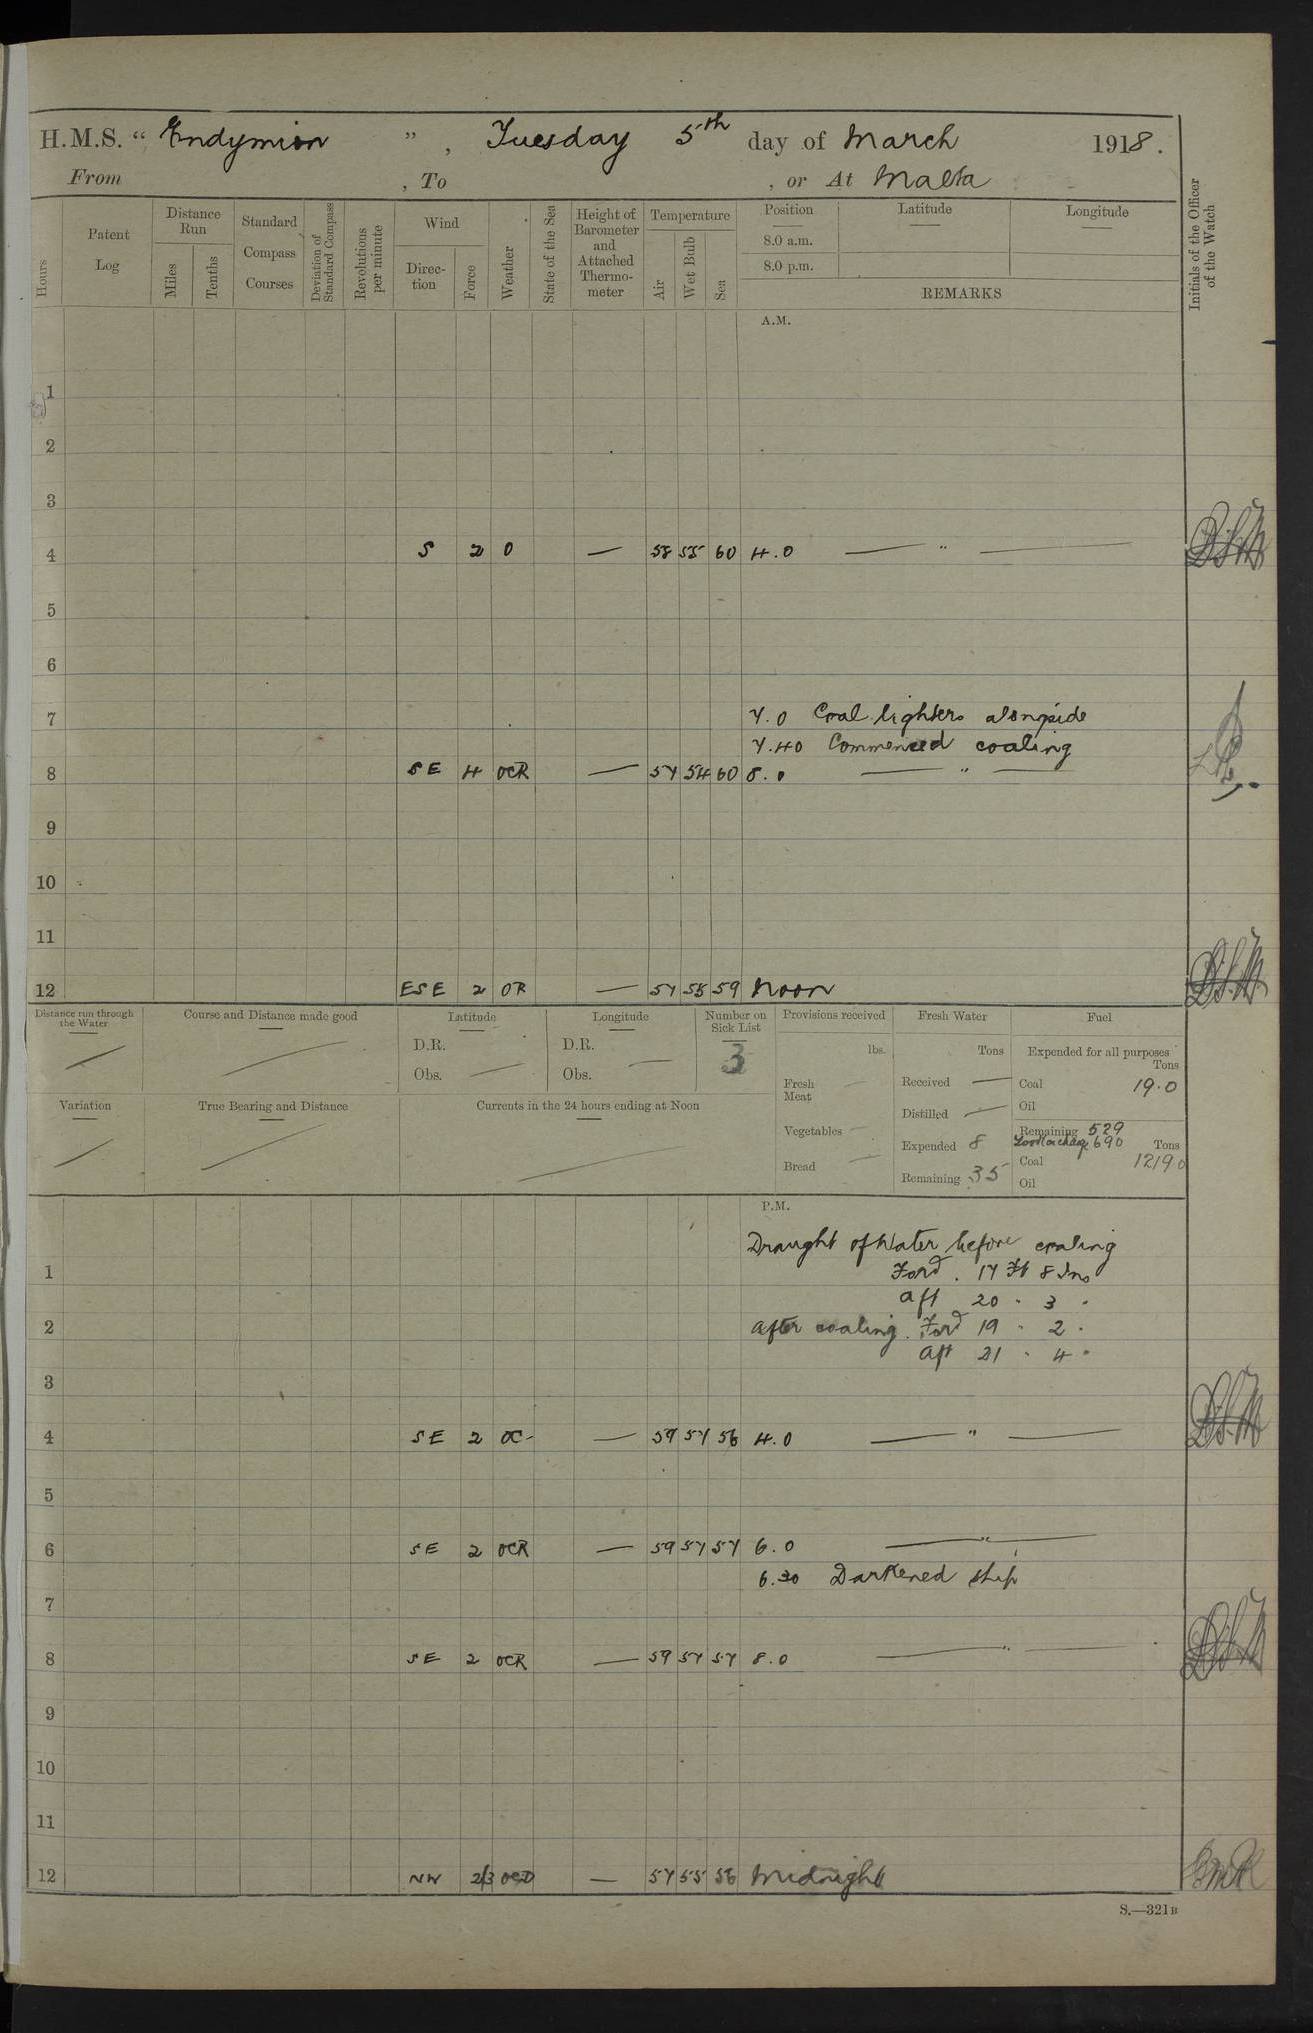 H.M.S. “ Endymion ”, Tuesday 5th day of March 1918.
From , To , or At Malta
Hours
Patent Log
Distance Run
Miles
Tenths
Standard Compass Courses
Deviation of Standard Compass
Revolutions per minute
Wind
Direc-tion
Force
Weather
State of the Sea
Height of Barometer and Attached Thermo-meter
Temperature
Air
Wet Bulb
Sea
Position
8.0 a.m.
8.0 p.m.
Latitude
Longitude
REMARKS
Initials of the Officer of the Watch
A.M.
1
2
3
4 S 2 O — 58 55 60 4.0 — " —
5
6
7 7.0 Coal lighters alongside
7.40 Commenced coaling
8 SE 4 OCR — 57 54 60 8.0 — " —
9
10
11
12 ESE 2 OR — 57 55 59 Noon
Distance run through the Water
Course and Distance made good
Latitude
D.R.
Obs. —
Longitude
D.R.
Obs. —
Number on Sick List
3
Variation
True Bearing and Distance
Currents in the 24 hours ending at Noon
Provisions received
lbs.
Fresh Meat —
Vegetables —
Bread —
Fresh Water
Tons
Received —
Distilled —
Expended 8
Remaining 35
Fuel
Expended for all purposes
Tons
Coal 19.0
Oil
Remaining 529
690 Tons
Coal 1219 0
Oil
P.M.
Draught of Water before coaling
1 Ford. 17 Ft 8 Ins
Aft 20 " 3 "
2 After coaling. Ford 19 " 2 "
Aft 21 " 4 "
3
4 SE 2 OC- — 59 57 56 4.0 — " —
5
6 SE 2 OCR — 59 57 57 6.0 — " —
6.30 Darkened ship
7
8 SE 2 OCR — 59 57 57 8.0 — " —
9
10
11
12 NW 2/3 OCD — 57 55 56 Midnight
S.—321B